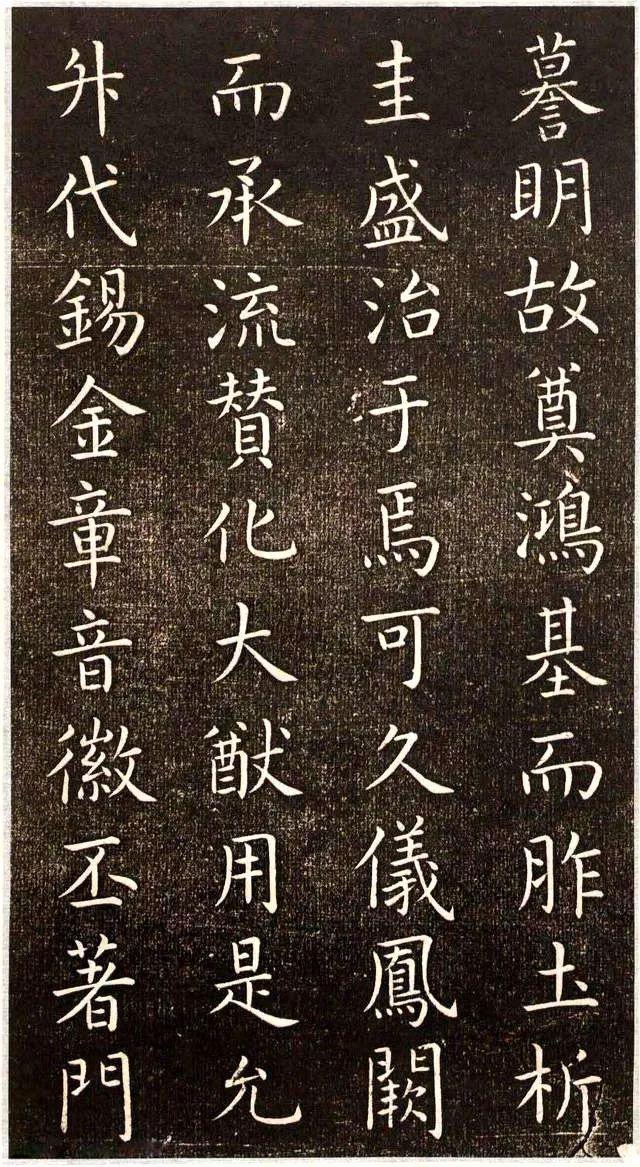 謩眀故奠鴻基而胙圡析
圭盛治于焉可久儀鳳闕
而承流賛化大猷用是允
升代錫金章音徽丕著門